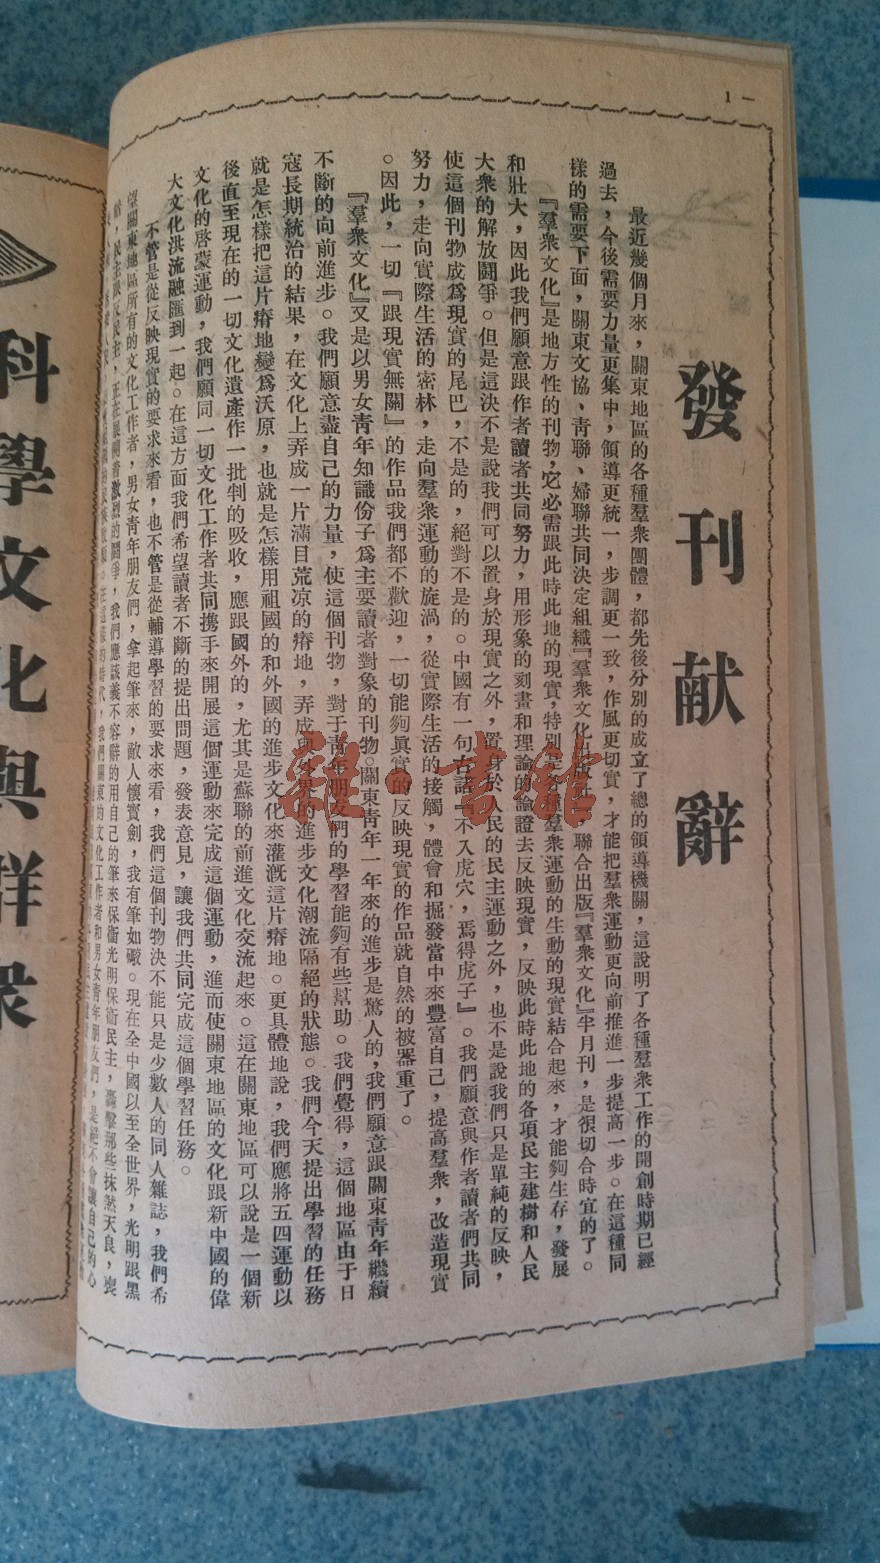 1 —
發刊献辭
最近幾個月來，關東地區的各種羣衆團體，都先後分別的成立了總的領導機關，這說明了各種羣衆工作的開創時期已經
過去，今後需要力量更集中，領導更統一，步調更一致，作風更切實，才能把羣衆運動更向前推進一步提高一步。在這種同
樣的需要下面，關東文協、靑聯、婦聯共同決定組織『羣衆文化出版社』，聯合出版『羣衆文化』半月刊，是很切合時宜的了。
『羣衆文化』是地方性的刊物，它必需跟此時此地的現實，特別是各種羣衆運動的生動的現實結合起來，才能夠生存，發展
和壯大，因此我們願意跟作者讀者共同努力，用形象的刻畫和理論的論證去反映現實，反映此時此地的各項民主建樹和人民
大衆的解放鬪爭。但是這決不是說我們可以置身於現實之外，置身於人民的民主運動之外，也不是說我們只是單純的反映，
使這個刊物成爲現實的尾巴，不是的，絕對不是的。中國有一句古話『不入虎穴，焉得虎子』。我們願意與作者讀者們共同
努力，走向實際生活的密林，走向羣衆運動的旋渦，從實際生活的接觸，體會和掘發當中來豐富自己，提高羣衆，改造現實
。因此，一切『跟現實無關』的作品我們都不歡迎，一切能夠眞實的反映現實的作品就自然的被器重了。
『羣衆文化』又是以男女靑年知識份子爲主要讀者對象的刊物。關東靑年一年來的進步是驚人的，我們願意跟關東靑年繼續
不斷的向前進步。我們願意盡自己的力量，使這個刊物，對于靑年朋友們的學習能夠有些幫助。我們覺得，這個地區由于日
寇長期統治的結果，在文化上弄成一片滿目荒凉的瘠地，弄成與外界的進步文化潮流隔絕的狀態。我們今天提出學習的任務
就是怎樣把這片瘠地變爲沃原，也就是怎樣用祖國的和外國的進步文化來灌漑這片瘠地。更具體地說，我們應將五四運動以
後直至現在的一切文化遺產作一批判的吸收，應跟國外的，尤其是蘇聯的前進文化交流起來。這在關東地區可以說是一個新
文化的啓蒙運動，我們願同一切文化工作者共同携手來開展這個運動來完成這個運動，進而使關東地區的文化跟新中國的偉
大文化洪流融匯到一起。在這方面我們希望讀者不斷的提出問題，發表意見，讓我們共同完成這個學習任務。
不管是從反映現實的要求來看，也不管是從輔導學習的要求來看，我們這個刊物決不能只是少數人的同人雜誌，我們希
望關東地區所有的文化工作者，男女靑年朋友們，拿起筆來，敵人懷寳劍，我有筆如礮。現在全中國以至全世界，光明跟黑
暗，民主跟反民主，正在展開着激烈的鬪爭，我們應該義不容辭的用自己的筆來保衞光明保衞民主，轟擊那些抹煞天良，喪
在這樣的時代，我們關東的文化工作者和男女靑年朋友們，是絕不會讓自己的心
科學文化與群衆
雜·書館